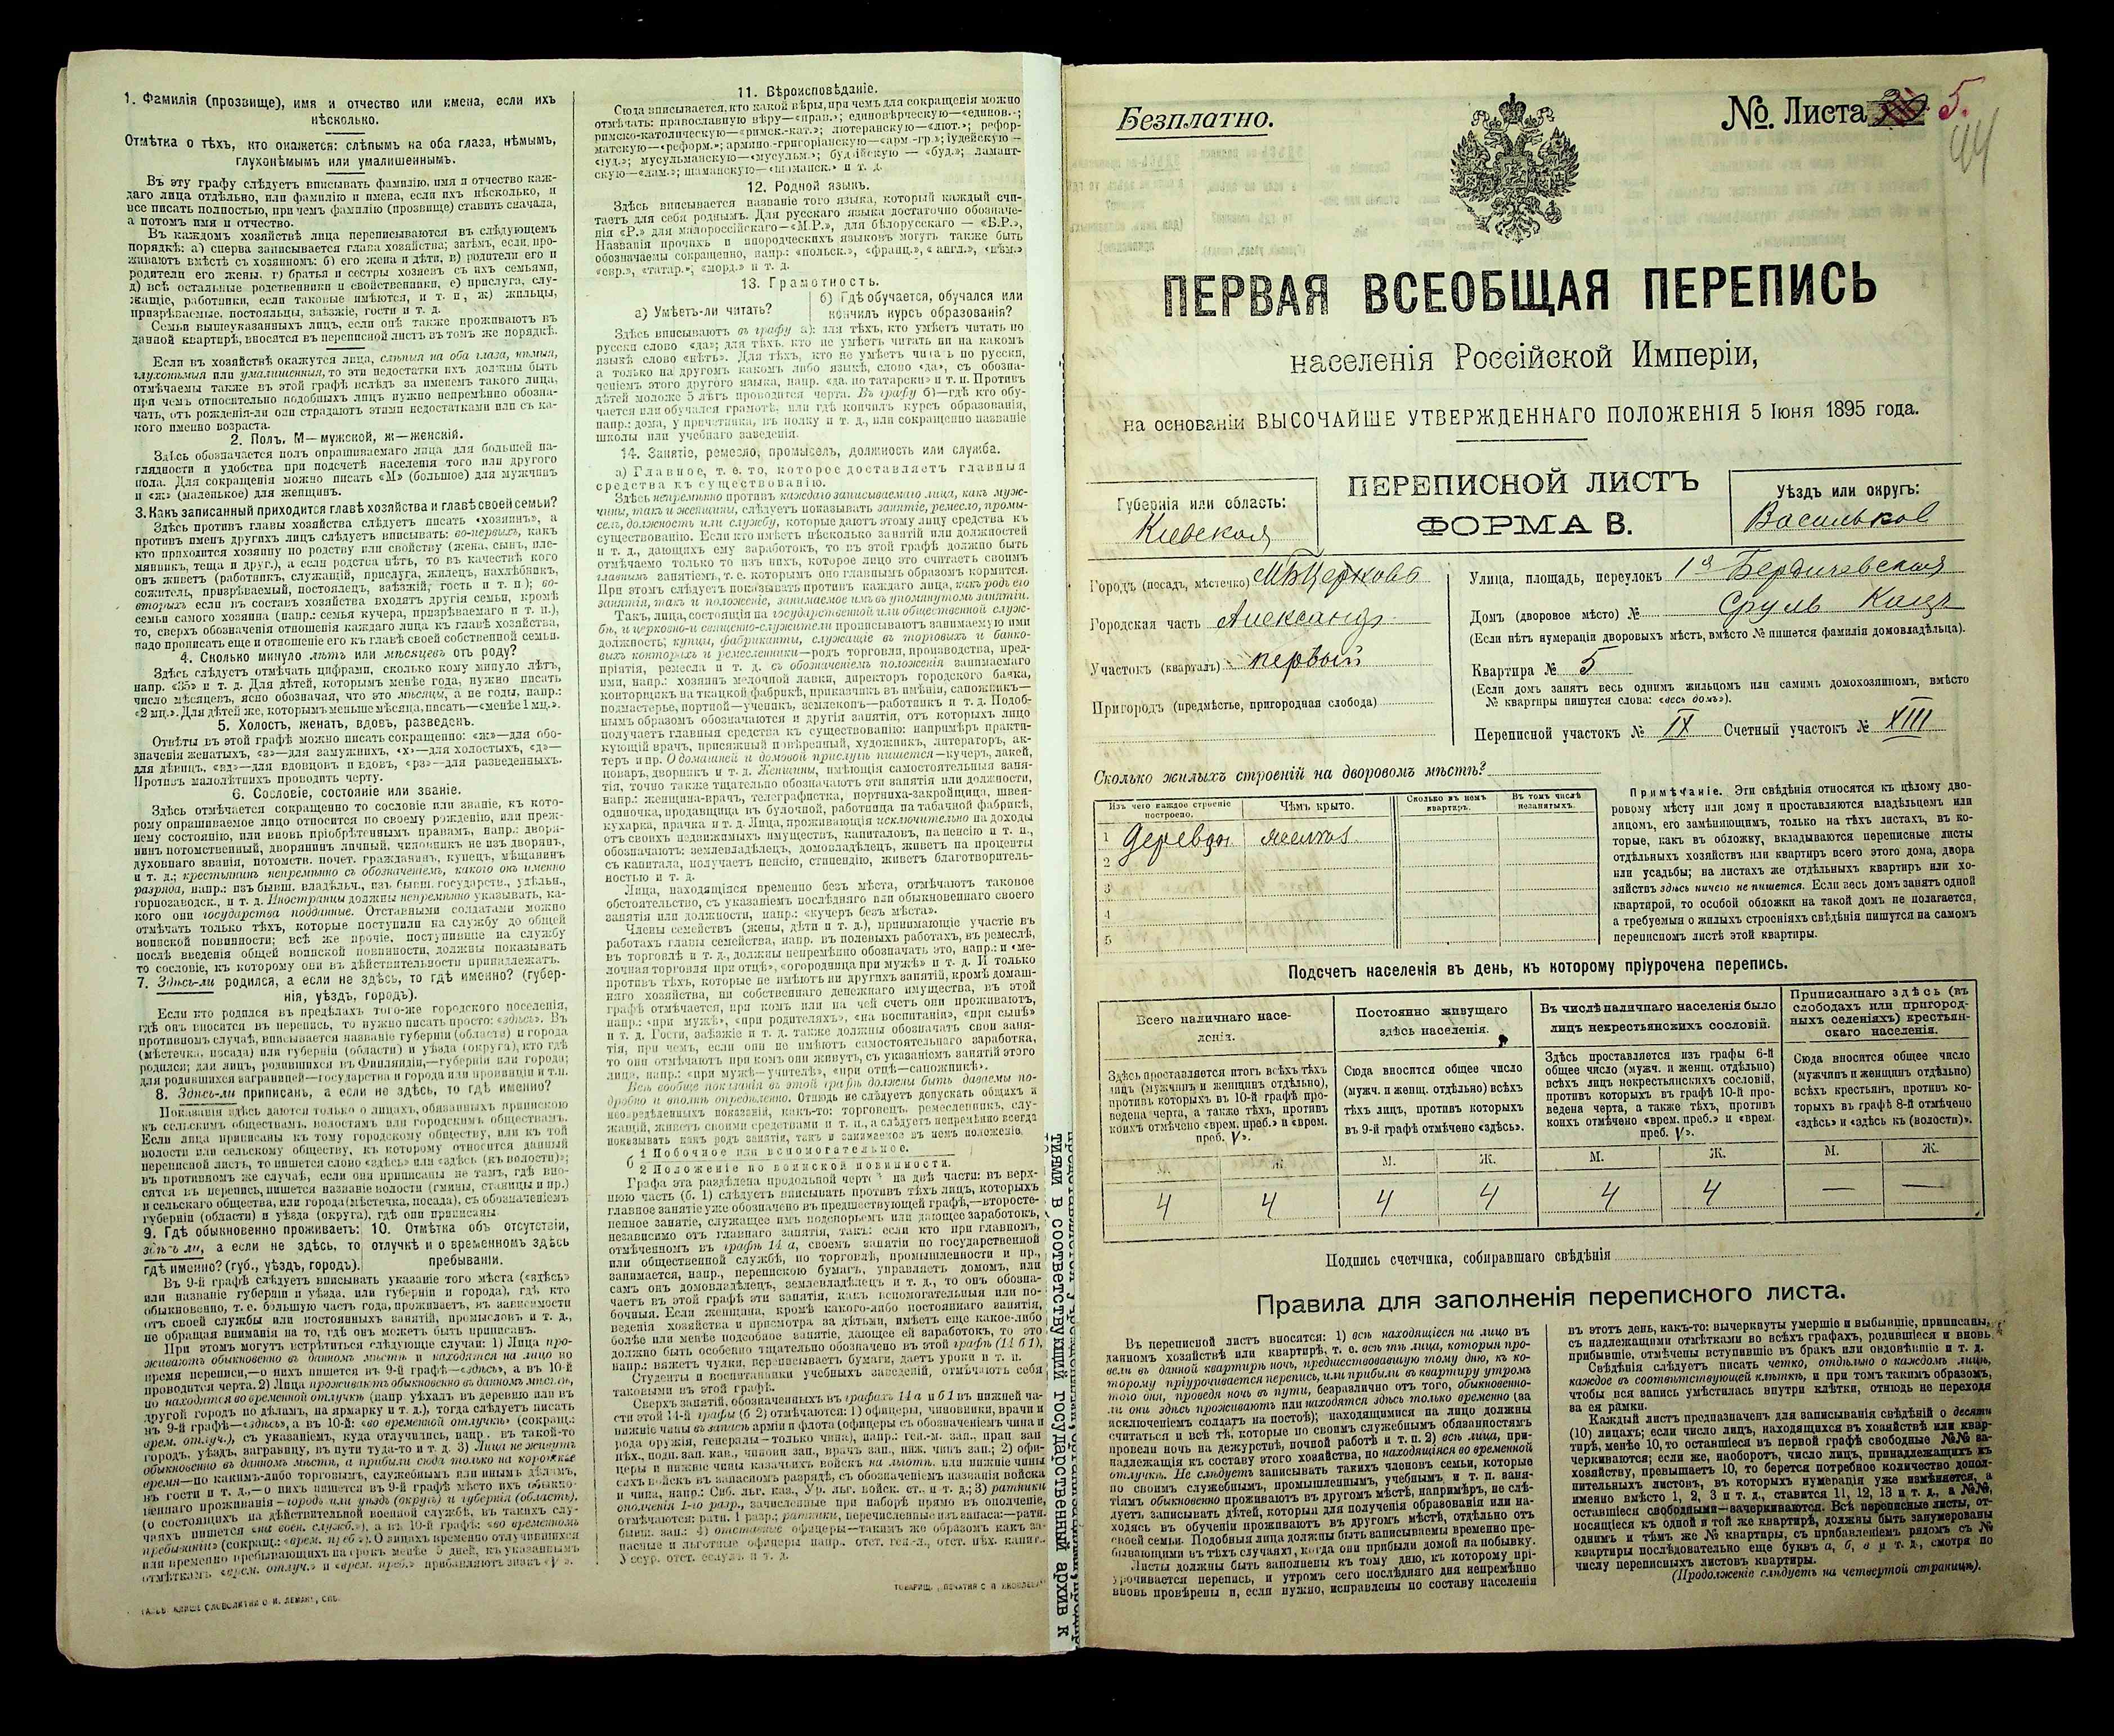 1. Фамилія (прозвище), имя и отчество или имена, если ихъ
нѣсколько.
Отмѣтка о тѣхъ, кто окажется: слѣпымъ на оба глаза, нѣмымъ,
глухонѣмымъ или умалишеннымъ.
Въ эту графу слѣдуетъ вписывать фамилію, имя и отчество каж-
даго лица отдѣльно, или фамилію и имена, если ихъ нѣсколько, и
все писать полностью, при чемъ фамилію (прозвище) ставить сначала,
а потомъ имя и отчество.
Въ каждомъ хозяйствѣ лица переписываются въ слѣдующемъ
порядкѣ: а) сперва записывается глава хозяйства; затѣмъ, если, про-
живаютъ вмѣстѣ съ хозяиномъ: б) его жена и дѣти, в) родители его и
родители его жены, г) братья и сестры хозяевъ съ ихъ семьями,
д) всѣ остальные родственники и свойственники, е) прислуга, слу-
жащіе, работники, если таковые имѣются, и т. п, ж) жильцы,
призрѣваемые, постояльцы, заѣзжіе, гости и т. д.
Семьи вышеуказанныхъ лицъ, если онѣ также проживаютъ въ
данной квартирѣ, вносятся въ переписной листъ въ томъ же порядкѣ.
Если въ хозяйствѣ окажутся лица, слѣпыя на оба глаза, нѣмыя,
глухонѣмыя или умалишенныя, то эти недостатки ихъ должны быть
отмѣчаемы также въ этой графѣ вслѣдъ за именемъ такого лица,
при чемъ относительно подобныхъ лицъ нужно непремѣнно обозна-
чать, отъ рожденія-ли они страдаютъ этими недостатками или съ ка-
кого именно возраста.
2. Полъ, М—мужской, ж—женскій.
Здѣсь обозначается полъ опрашиваемаго лица для большей на-
глядности и удобства при подсчетѣ населенія того или другого
пола. Для сокращенія можно писать «М» (большое) для мужчинъ
и «ж» (маленькое) для женщинъ.
3. Какъ записанный приходится главѣ хозяйства и главѣ своей семьи?
Здѣсь противъ главы хозяйства слѣдуетъ писать «хозяинъ», а
противъ именъ другихъ лицъ слѣдуетъ вписывать: во-первыхъ, какъ
кто приходится хозяину по родству или свойству (жена, сынъ, пле-
мянникъ, теща и друг.), а если родства нѣтъ, то въ качествѣ кого
онъ живетъ (работникъ, служащій, прислуга, жилецъ, нахлѣбникъ,
сожитель, призрѣваемый, постоялецъ, заѣзжій, гость и т. п ); во-
вторыхъ если въ составъ хозяйства входятъ другія семьи, кромѣ
семьи самого хозяина (напр.: семья кучера, призрѣваемаго и т. п.),
то, сверхъ обозначенія отношенія каждаго лица къ главѣ хозяйства,
надо прописать еще и отношеніе его къ главѣ своей собственной семьи.
4. Сколько минуло лѣтъ или мѣсяцевъ отъ роду?
Здѣсь слѣдуетъ отмѣчать цифрами, сколько кому минуло лѣтъ,
напр. «35» и т. д. Для дѣтей, которымъ менѣе года, нужно писать
число мѣсяцевъ, ясно обозначая, что это мѣсяцы, а не годы, напр.:
«2 мц.». Для дѣтей же, которымъ меньше мѣсяца, писать—«менѣе 1 мц.».
5. Холостъ, женатъ, вдовъ, разведенъ.
Отвѣты въ этой графѣ можно писать сокращенно: «ж»—для обо-
значенія женатыхъ, «з»—для замужнихъ, «х»—для холостыхъ, «д»—
для дѣвицъ, «вд»—для вдовцовъ и вдовъ, «рз»—для разведенныхъ.
Противъ малолѣтнихъ проводить черту.
6. Сословіе, состояніе или званіе.
Здѣсь отмѣчается сокращенно то сословіе или званіе, къ кото-
рому опрашиваемое лицо относится по своему рожденію, или преж-
нему состоянію, или вновь пріобрѣтеннымъ правамъ, напр.: дворя-
нинъ потомственный, дворянинъ личный, чиновникъ не изъ дворянъ,
духовнаго званія, потомств. почет. гражданинъ, купецъ, мѣщанинъ
и т. д.; крестьянинъ непремѣнно съ обозначеніемъ, какого онъ именно
разряда, напр.: изъ бывш. владѣльч., изъ бывш. государств., удѣльн.,
горнозаводск., и т. д. Иностранцы должны непремѣнно указывать, ка-
кого они государства подданные. Отставными солдатами можно
отмѣчать только тѣхъ, которые поступили на службу до общей
воинской повинности; всѣ же прочіе, поступившіе на службу
послѣ введенія общей воинской повинности, должны показывать
то сословіе, къ которому они въ дѣйствительности принадлежатъ.
7. Здѣсь-ли родился, а если не здѣсь, то гдѣ именно? (губер-
нія, уѣздъ, городъ).
Если кто родился въ предѣлахъ того-же городского поселенія,
гдѣ онъ вносится въ перепись, то нужно писать просто: «здѣсь». Въ
противномъ случаѣ, вписывается названіе губерніи (области) и города
(мѣстечка, посада) или губерніи (области) и уѣзда (округа), кто гдѣ
родился; для лицъ, родившихся въ Финляндіи,—губерніи или города;
для родившихся заграницей—государства и города или провинціи и т.п.
8. Здѣсь-ли приписанъ, а если не здѣсь, то гдѣ именно?
Показанія здѣсь даются только о лицахъ, обязанныхъ припискою
къ сельскимъ обществамъ, волостямъ или городскимъ обществамъ.
Если лица приписаны къ тому городскому обществу, или къ той
волости или сельскому обществу, къ которому относится данный
переписной листъ, то пишется слово «здѣсь» или «здѣсь (къ волости)»;
въ противномъ же случаѣ, если они приписаны не тамъ, гдѣ вно-
сятся въ перепись, пишется названіе волости (гмины, станицы и пр.)
и сельскаго общества, или города (мѣстечка, посада), съ обозначеніемъ
губерніи (области) и уѣзда (округа), гдѣ они приписаны
9. Гдѣ обыкновенно проживаетъ:
здѣсь ли, а если не здѣсь, то
гдѣ именно? (губ., уѣздъ, городъ).
10. Отмѣтка объ отсутствіи,
отлучкѣ и о временномъ здѣсь
пребываніи.
Въ 9-й графѣ слѣдуетъ вписывать указаніе того мѣста («здѣсь»
или названіе губерніи и уѣзда. или губерніи и города), гдѣ кто
обыкновенно, т. е. большую часть года, проживаетъ, въ зависимости
отъ своей службы или постоянныхъ занятій, промысловъ и т. д.,
не обращая вниманія на то, гдѣ онъ можетъ быть приписанъ.
При этомъ могутъ встрѣтиться слѣдующіе случаи: 1) Лица про-
живаютъ обыкновенно въ данномъ мѣстѣ и находятся на лицо во
время переписи,—о нихъ пишется въ 9-й графѣ—«здѣсь», а въ 10-й
проводится черта. 2) Лица проживаютъ обыкновенно въ данномъ мѣстѣ,
но находятся во временной отлучкѣ (напр. уѣхалъ въ деревню или въ
другой городъ по дѣламъ, на ярмарку и т. д.), тогда слѣдуетъ писать
въ 9-й графѣ—«здѣсь», а въ 10-й: «во временной отлучкѣ» (сокращ.:
врем. отлуч.), съ указаніемъ, куда отлучились, напр. въ такой-то
городъ, уѣздъ, заграницу, въ пути туда-то и т. д. 3) Лица не живутъ
обыкновенно въ данномъ мѣстѣ, а прибыли сюда только на короткое
время—по какимъ-либо торговымъ, служебнымъ или инымъ дѣламъ,
въ гости и т. д.,—о нихъ пишется въ 9-й графѣ мѣсто ихъ обыкно-
веннаго проживанія—городъ или уѣздъ (округъ) и губернія (область),
(о состоящихъ на дѣйствительной военной службѣ, въ такихъ слу-
чаяхъ пишется «на воен. службѣ.»), а въ 10-й графѣ: «во временномъ
пребываніи» (сокращ.: «врем. преб.»). О лицахъ временно отлучившихся
или временно пребывающихъ на срокъ менѣе 5 дней, къ указаннымъ
отмѣткамъ «врем. отлуч.» и «врем. преб.» прибавляютъ знакъ «V».
11. Вѣроисповѣданіе.
Сюда вписывается, кто какой вѣры, при чемъ для сокращенія можно
отмѣчать: православную вѣру—«прав.»; единовѣрческую—«единов.»;
римско-католическую—«римск.-кат.»; лютеранскую—«лют.»; рефор-
матскую—«реформ.»; армяно-григоріанскую—«арм-гр.»; іудейскую—
«іуд.»; мусульманскую—«мусульм.»; буддійскую — «буд.»; ламаит-
скую—«лам.»; шаманскую—«шаманск.» и т. д.
12. Родной языкъ.
Здѣсь вписывается названіе того языка, который каждый счи-
таетъ для себя роднымъ. Для русскаго языка достаточно обозначе-
нія «Р.» для малороссійскаго—«М.Р.», для бѣлорусскаго — «Б.Р.»,
Названія прочихъ и инородческихъ языковъ могутъ также быть
обозначаемы сокращенно, напр.: «польск.», «франц.», « англ.», «нѣм.»
«евр.», «татар.»; «морд.» и т. д.
13. Грамотность.
а) Умѣетъ-ли читать?
б) Гдѣ обучается, обучался или
кончилъ курсъ образованія?
Здѣсь вписываютъ въ графу а): для тѣхъ, кто умѣетъ читать по
русски слово «да»; для тѣхъ, кто не умѣетъ читать ни на какомъ
языкѣ слово «нѣтъ». Для тѣхъ, кто не умѣетъ читать по русски,
а только на другомъ какомъ либо языкѣ, слово «да», съ обозна-
ченіемъ этого другого языка, напр. «да. по татарски» и т. п. Противъ
дѣтей моложе 5 лѣтъ проводится черта. Въ графу б)—гдѣ кто обу-
чается или обучался грамотѣ, или гдѣ кончилъ курсъ образованія,
напр.: дома, у причетника, въ полку и т. д., или сокращенно названіе
школы или учебнаго заведенія.
14. Занятіе, ремесло, промыселъ, должность или служба.
а) Главное, т. е. то, которое доставляетъ главныя
средства къ существованію.
Здѣсь непремѣнно противъ каждаго записываемаго лица, какъ муж-
чины, такъ и женщины, слѣдуетъ показывать занятіе, ремесло, промы-
селъ, должность или службу, которые даютъ этому лицу средства къ
существованію. Если кто имѣетъ нѣсколько занятій или должностей
и т. д., дающихъ ему заработокъ, то въ этой графѣ должно быть
отмѣчаемо только то изъ нихъ, которое лицо это считаетъ своимъ
главнымъ занятіемъ, т. е. которымъ оно главнымъ образомъ кормится.
При этомъ слѣдуетъ показывать противъ каждаго лица, какъ родъ его
занятій, такъ и положеніе, занимаемое имъ въ упомянутомъ занятіи.
Такъ, лица, состоящія на государственной или общественной служ-
бѣ, и церковно-и священно-служители прописываютъ занимаемую ими
должность; купцы, фабриканты, служащіе въ торговыхъ и банко-
выхъ конторахъ и ремесленники—родъ торговли, производства, пред-
пріятія, ремесла и т. д. съ обозначеніемъ положенія занимаемаго
ими, напр.: хозяинъ мелочной лавки, директоръ городского банка,
конторщикъ на ткацкой фабрикѣ, приказчикъ въ имѣніи, сапожникъ—
подмастерье, портной—ученикъ, землекопъ—работникъ и т. д. Подоб-
нымъ образомъ обозначаются и другія занятія, отъ которыхъ лицо
получаетъ главныя средства къ существованію: напримѣръ практи-
кующій врачъ, присяжный повѣренный, художникъ, литераторъ, ак-
теръ и пр. О домашней и домовой прислугѣ пишется—кучеръ, лакей,
поваръ, дворникъ и т. д. Женщины, имѣющія самостоятельныя заня-
тія, точно также тщательно обозначаютъ эти занятія или должности,
напр.: женщина-врачъ, телеграфистка, портниха-закройщица, швея-
одиночка, продавщица въ булочной, работница на табачной фабрикѣ,
кухарка, прачка и т. д. Лица, проживающія исключительно на доходы
отъ своихъ недвижимыхъ имуществъ, капиталовъ, на пенсію и т. п.,
обозначаютъ: землевладѣлецъ, домовладѣлецъ, живетъ на проценты
съ капитала, получаетъ пенсію, стипендію, живетъ благотворитель-
ностью и т. д.
Лица, находящіяся временно безъ мѣста, отмѣчаютъ таковое
обстоятельство, съ указаніемъ послѣдняго или обыкновеннаго своего
занятія или должности, напр.: «кучеръ безъ мѣста».
Члены семействъ (жены, дѣти и т. д.), принимающіе участіе въ
работахъ главы семейства, напр. въ полевыхъ работахъ, въ ремеслѣ,
въ торговлѣ и т. д., должны непремѣнно обозначать это, напр.: и «ме-
лочная торговля при отцѣ», «огородница при мужѣ» и т. д. И только
противъ тѣхъ, которые не имѣютъ ни другихъ занятій, кромѣ домаш-
няго хозяйства, ни собственнаго денежнаго имущества, въ этой
графѣ отмѣчается, при комъ или на чей счетъ они проживаютъ,
напр.: «при мужѣ», «при родителяхъ», «на воспитаніи», «при сынѣ»
и т. д. Гости, заѣзжіе и т. д. также должны обозначать свои заня-
тія, при чемъ, если они не имѣютъ самостоятельнаго заработка,
то они отмѣчаютъ при комъ они живутъ, съ указаніемъ занятій этого
лица, напр.: «при мужѣ—учителѣ», «при отцѣ—сапожникѣ».
Всѣ вообще показанія въ этой графѣ должны быть даваемы по-
дробно и вполнѣ опредѣленно. Отнюдь не слѣдуетъ допускать общихъ и
неопредѣленныхъ показаній, какъ-то: торговецъ, ремесленникъ, слу-
жащій, живетъ своими средствами и т. п., а слѣдуетъ непремѣнно всегда
показывать какъ родъ занятія, такъ и занимаемое въ немъ положеніе.
б 1 Побочное или вспомогательное.
2 Положеніе по воинской повинности.
Графа эта раздѣлена продольной чертой на двѣ части: въ верх-
нюю часть (б. 1) слѣдуетъ вписывать противъ тѣхъ лицъ, которыхъ
главное занятіе уже обозначено въ предшествующей графѣ,—второсте-
пенное занятіе, служащее имъ подспорьемъ или дающее заработокъ,
независимо отъ главнаго занятія, такъ: если кто при главномъ,
отмѣченномъ въ графѣ 14 а, своемъ занятіи по государственной
или общественной службѣ, по торговлѣ, промышленности и пр.,
занимается, напр., перепискою бумагъ, управляетъ домомъ, или
самъ онъ домовладѣлецъ, землевладѣлецъ и т. д., то онъ обозна-
чаетъ въ этой графѣ эти занятія, какъ вспомогательныя или по-
бочныя. Если женщина, кромѣ какого-либо постояннаго занятія,
веденія хозяйства и присмотра за дѣтьми, имѣетъ еще какое-либо
болѣе или менѣе подсобное занятіе, дающее ей заработокъ, то это
должно быть особенно тщательно обозначено въ этой графѣ (14 б 1),
напр.: вяжетъ чулки, переписываетъ бумаги, даетъ уроки и т. п.
Студенты и воспитанники учебныхъ заведеній, отмѣчаютъ себя
таковыми въ этой графѣ.
Сверхъ занятій, обозначенныхъ въ графахъ 14 а и б 1 въ нижней ча-
сти этой 14-й графы (б 2) отмѣчаются: 1) офицеры, чиновники, врачи и
нижніе чины въ запасѣ арміи и флота (офицеры съ обозначеніемъ чина и
рода оружія, генералы—только чина), напр.: ген.-м. зап., прап зап
пѣх., подп. зап. кав., чиновн зап., врачъ зап., ниж. чинъ зап.; 2) офи-
церы и нижніе чины казачьихъ войскъ на льготѣ. или нижніе чины
сихъ войскъ въ запасномъ разрядѣ, съ обозначеніемъ названія войска
и чина, напр.: Сиб. льг. каз., Ур. льг. войск. ст. и т. д.; 3) ратники
ополченія 1-го разр., зачисленные при наборѣ прямо въ ополченіе,
отмѣчаются: ратн. 1 разр.; ратники, перечисленные изъ запаса:—ратн.
бывш. зап.: 4) отставные офицеры—такимъ же образомъ какъ за-
пасные и льготные офицеры напр. отст. ген.-л., отст. пѣх. капит.,
Уссур. отст. есаулъ и т. д.
тиями в соответствующий государственный архив к
Безплатно.
№ Листа 5.
44
ПЕРВАЯ ВСЕОБЩАЯ ПЕРЕПИСЬ
населенія Россійской Имперіи,
на основаніи ВЫСОЧАЙШЕ УТВЕРЖДЕННАГО ПОЛОЖЕНІЯ 5 Іюня 1895 года.
Губернія или область:
Киевская
ПЕРЕПИСНОЙ ЛИСТЪ
ФОРМА В.
Уѣздъ или округъ:
Васильков
Городъ (посадъ, мѣстечко) М БЦерковь
Городская часть Александр.
Участокъ (кварталъ) первый
Пригородъ (предмѣстье, пригородная слобода)
Улица, площадь, переулокъ 1я Бердичевская
Домъ (дворовое мѣсто) № Сруль Кацъ
(Если нѣтъ нумераціи дворовыхъ мѣстъ, вмѣсто № пишется фамилія домовладѣльца).
Квартира № 5
(Если домъ занятъ весь однимъ жильцомъ или самимъ домохозяиномъ, вмѣсто
№ квартиры пишутся слова: «весь домъ»).
Переписной участокъ № IX Счетный участокъ № XIII
Сколько жилыхъ строеній на дворовомъ мѣстѣ?
Изъ чего каждое строеніе построено.
Чѣмъ крыто.
Сколько въ немъ квартиръ.
Въ томъ числѣ незанятыхъ.
1 деревян
2
3
4
5
Примѣчаніе. Эти свѣдѣнія относятся къ цѣлому дво-
ровому мѣсту или дому и проставляются владѣльцемъ или
лицомъ, его замѣняющимъ, только на тѣхъ листахъ, въ ко-
торые, какъ въ обложку, вкладываются переписные листы
отдѣльныхъ хозяйствъ или квартиръ всего этого дома, двора
или усадьбы; на листахъ же отдѣльныхъ квартиръ или хо-
зяйствъ здѣсь ничего не пишется. Если весь домъ занятъ одной
квартирой, то особой обложки на такой домъ не полагается,
а требуемыя о жилыхъ строеніяхъ свѣдѣнія пишутся на самомъ
переписномъ листѣ этой квартиры.
Подсчетъ населенія въ день, къ которому пріурочена перепись.
Всего наличнаго насе-
ленія.
Здѣсь проставляется итогъ всѣхъ тѣхъ
лицъ (мужчинъ и женщинъ отдѣльно),
противъ которыхъ въ 10-й графѣ про-
ведена черта, а также тѣхъ, противъ
коихъ отмѣчено «врем. преб.» и «врем.
преб. V».
Постоянно живущаго
здѣсь населенія.
Сюда вносится общее число
(мужч. и женщ. отдѣльно) всѣхъ
тѣхъ лицъ, противъ которыхъ
въ 9-й графѣ отмѣчено «здѣсь».
Въ числѣ наличнаго населенія было
лицъ некрестьянскихъ сословій.
Здѣсь проставляется изъ графы 6-й
общее число (мужч. и женщ. отдѣльно)
всѣхъ лицъ некрестьянскихъ сословій,
противъ которыхъ въ графѣ 10-й про-
ведена черта, а также тѣхъ, противъ
коихъ отмѣчено «врем. преб.» и «врем.
преб. V».
Приписаннаго здѣсь (въ
слободахъ или пригород-
ныхъ селеніяхъ) крестьян-
скаго населенія.
Сюда вносится общее число
(мужчинъ и женщинъ отдѣльно)
всѣхъ крестьянъ, противъ ко-
торыхъ въ графѣ 8-й отмѣчено
«здѣсь» и «здѣсь къ (волости)».
М. Ж. М. Ж. М. Ж. М. Ж.
4 4 4 4 4 4 — —
Подпись счетчика, собиравшаго свѣдѣнія
Правила для заполненія переписного листа.
Въ переписной листъ вносятся: 1) всѣ находящіеся на лицо въ
данномъ хозяйствѣ или квартирѣ, т. е. всѣ тѣ лица, которыя про-
вели въ данной квартирѣ ночь, предшествовавшую тому дню, къ ко-
торому пріурочивается перепись, или прибыли въ квартиру утромъ
того дня, проведя ночь въ пути, безразлично отъ того, обыкновенно-
ли они здѣсь проживаютъ или находятся здѣсь только временно (за
исключеніемъ солдатъ на постоѣ); находящимися на лицо должны
считаться и всѣ тѣ, которые по своимъ служебнымъ обязанностямъ
провели ночь на дежурствѣ, ночной работѣ и т. п. 2) всѣ лица, при-
надлежащія къ составу этого хозяйства, но находящіяся во временной
отлучкѣ. Не слѣдуетъ записывать такихъ членовъ семьи, которые
по своимъ служебнымъ, промышленнымъ, учебнымъ и т. п. заня-
тіямъ обыкновенно проживаютъ въ другомъ мѣстѣ, напримѣръ, не слѣ-
дуетъ записывать дѣтей, которыя для полученія образованія или на-
ходясь въ обученіи проживаютъ въ другомъ мѣстѣ, отдѣльно отъ
своей семьи. Подобныя лица должны быть записываемы временно пре-
бывающими въ тѣхъ случаяхъ, когда они прибыли домой на побывку.
Листы должны быть заполнены къ тому дню, къ которому прі-
урочивается перепись, и утромъ сего послѣдняго дня непремѣнно
вновь провѣрены и, если нужно, исправлены по составу населенія
въ этотъ день, какъ-то: вычеркнуты умершіе и выбывшіе, приписаны,
съ надлежащими отмѣтками во всѣхъ графахъ, родившіеся и вновь
прибывшіе, отмѣчены вступившіе въ бракъ или овдовѣвшіе и т. д.
Свѣдѣнія слѣдуетъ писать четко, отдѣльно о каждомъ лицѣ,
каждое въ соотвѣтствующей клѣткѣ, и при томъ такимъ образомъ,
чтобы вся запись умѣстилась внутри клѣтки, отнюдь не переходя
за ея рамки.
Каждый листъ предназначенъ для записыванія свѣдѣній о десяти
(10) лицахъ; если число лицъ, находящихся въ хозяйствѣ или квар-
тирѣ, менѣе 10, то оставшіеся въ первой графѣ свободные №№ за-
черкиваются; если же, наоборотъ, число лицъ, принадлежащихъ къ
хозяйству, превышаетъ 10, то берется потребное количество допол-
нительныхъ листовъ, въ которыхъ нумерація уже измѣняется, а
именно вмѣсто 1, 2, 3 и т. д., ставится 11, 12, 13 и т. д., а №№,
оставшіеся свободными—зачеркиваются. Всѣ переписные листы, от-
носящіеся къ одной и той же квартирѣ, должны быть занумерованы
однимъ и тѣмъ же № квартиры, съ прибавленіемъ рядомъ съ №
квартиры послѣдовательно еще буквъ а, б, в и т. д., смотря по
числу переписныхъ листовъ квартиры.
(Продолженіе слѣдуетъ на четвертой страницѣ).